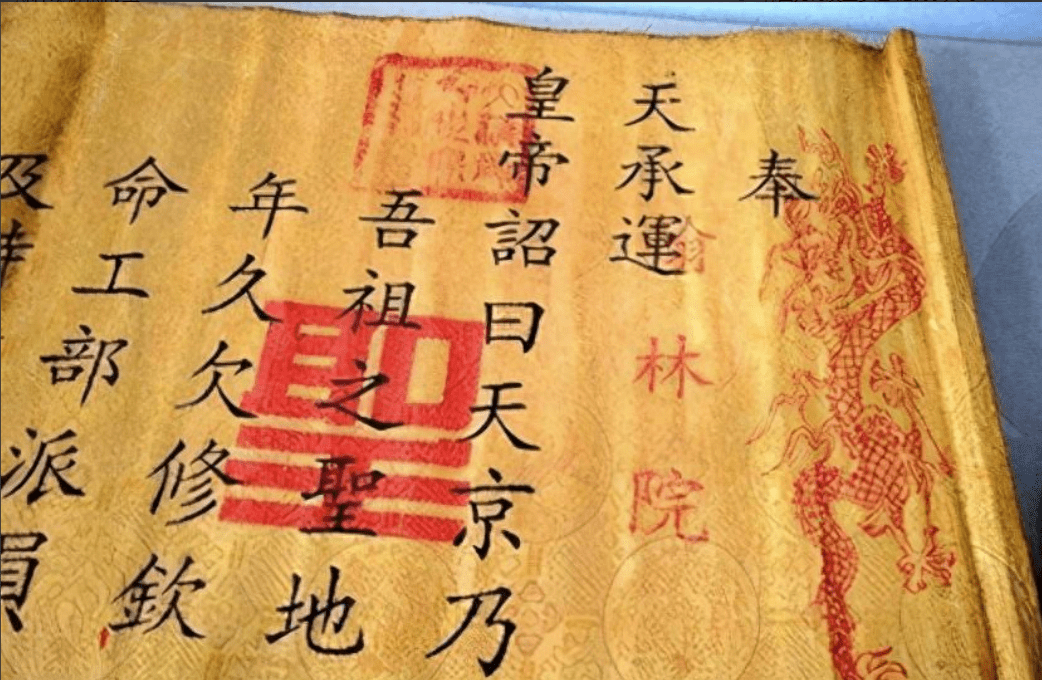 奉
天承運
翰林院
皇帝詔曰天京乃
吾祖之聖地
聖
年久欠修欽
命工部派員
及